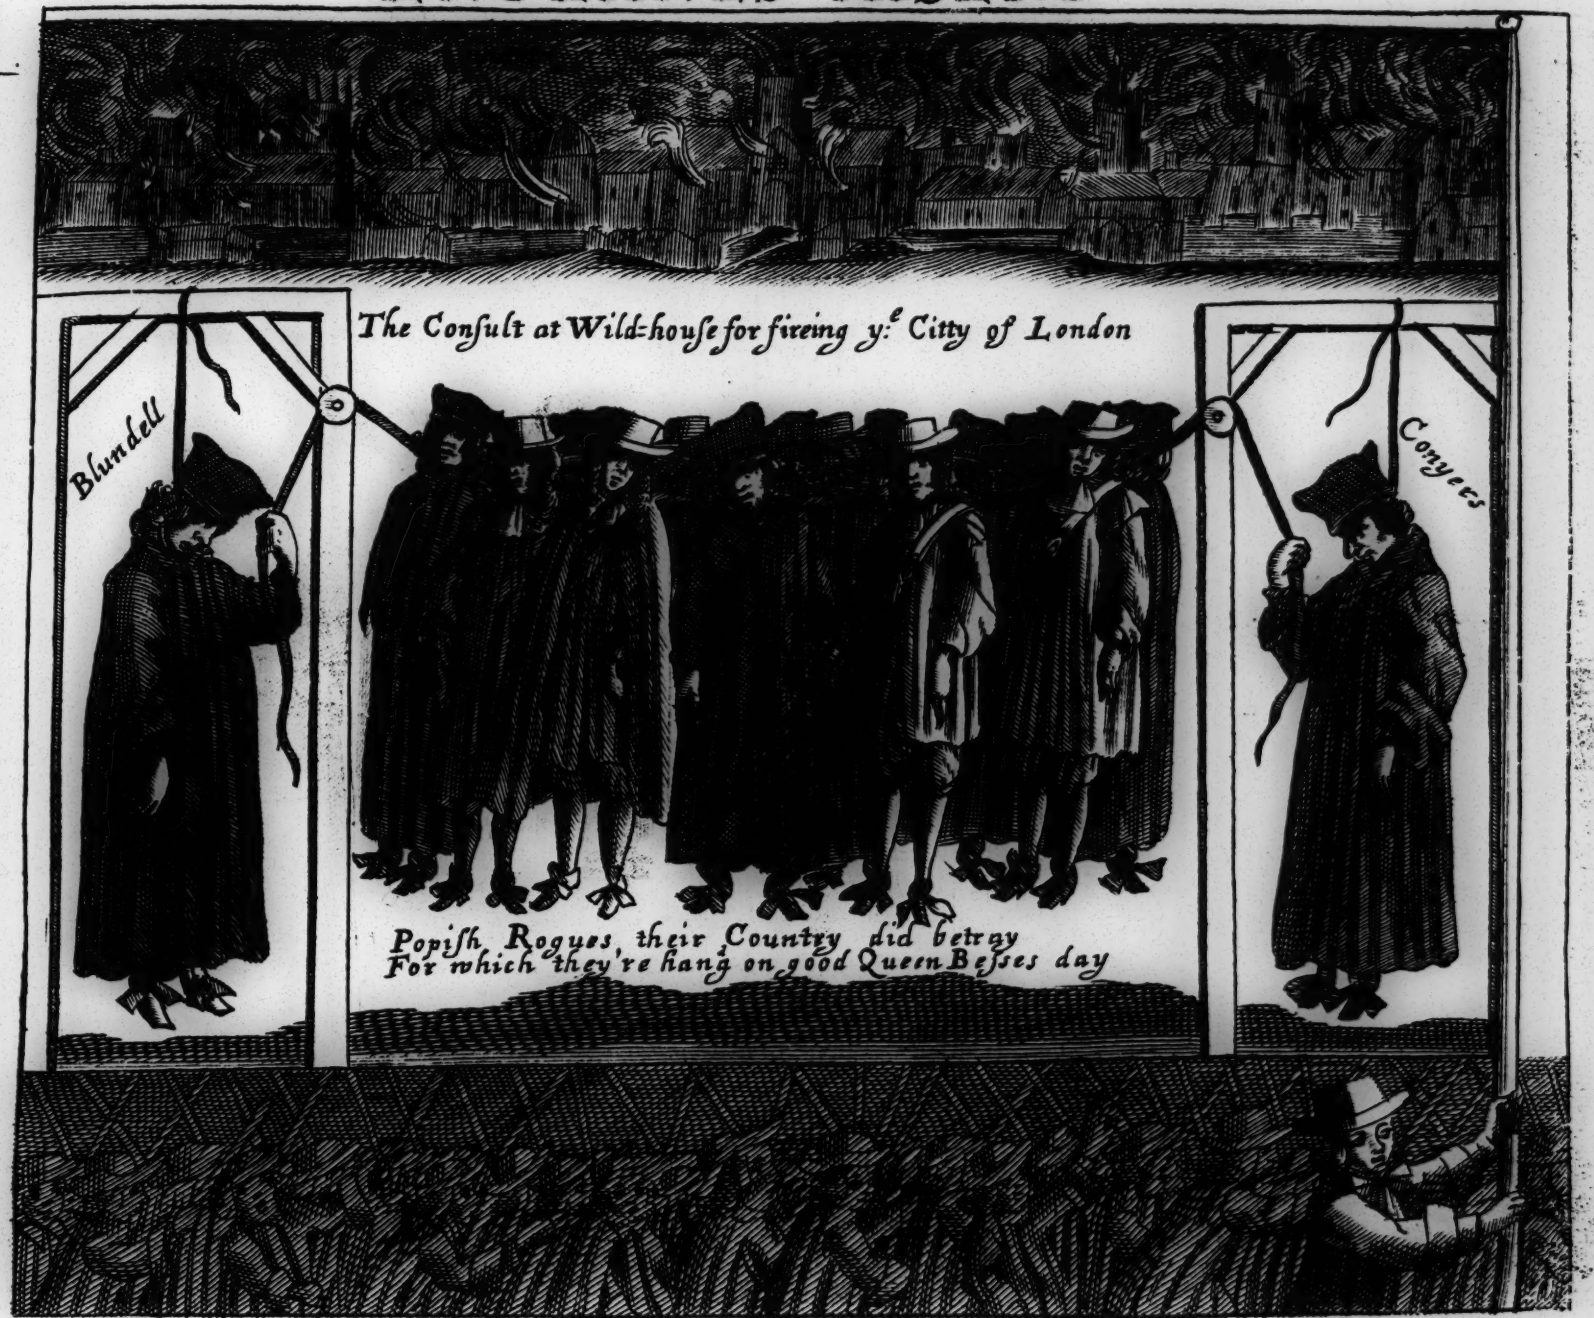 The Conſult at Wild=houſe for fireing y:e Citty of London
Blundell
Conyers
Popiſh Rogues, their Country did betray
For which they're hang on good Queen Beſses day